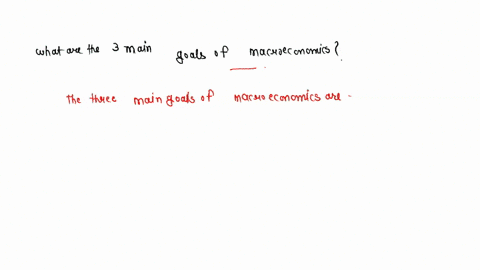 what are the 3 main goals of macroeconomics?
The three main goals of macroeconomics are -